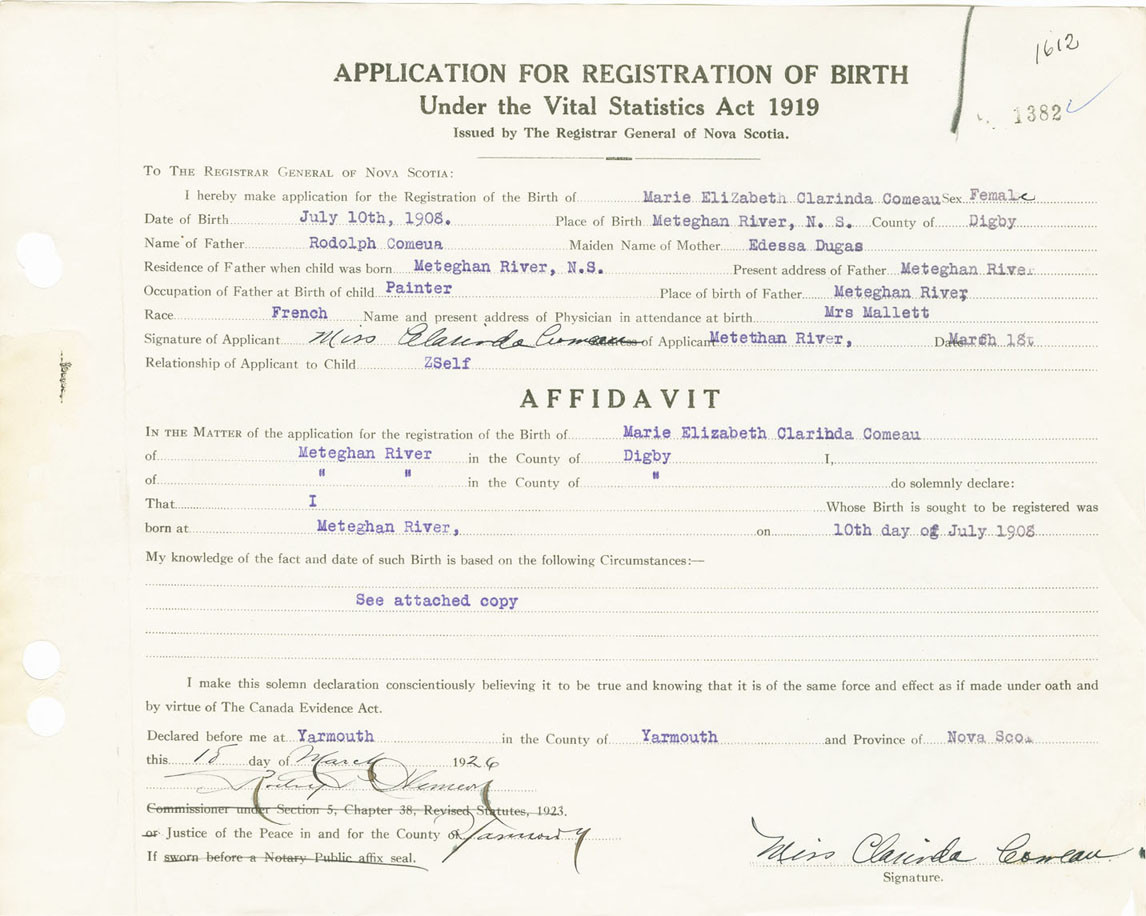 1612
1382
APPLICATION FOR REGISTRATION OF BIRTH
Under the Vital Statistics Act 1919
Issued by The Registrar General of Nova Scotia.
To The Registrar General of Nova Scotia:
I hereby make application for the Registration of the Birth of Marie Elizabeth Clarinda Comeau Sex Female
Date of Birth July 10th, 1908. Place of Birth Meteghan River, N. S. County of Digby
Name of Father Rodolph Comeua Maiden Name of Mother Edessa Dugas
Residence of Father when child was born Meteghan River, N.S. Present address of Father Meteghan River
Occupation of Father at Birth of child Painter Place of birth of Father Meteghan River,
Race French Name and present address of Physician in attendance at birth Mrs Mallett
Signature of Applicant Miss Clarinda Comeau of Applicant Metethan River, Date March 18t
Relationship of Applicant to Child ZSelf
AFFIDAVIT
In the Matter of the application for the registration of the Birth of Marie Elizabeth Clarinda Comeau
of Meteghan River in the County of Digby I,
of " " in the County of " do solemnly declare:
That I Whose Birth is sought to be registered was
born at Meteghan River, on 10th day of July 1908
My knowledge of the fact and date of such Birth is based on the following Circumstances:—
See attached copy
I make this solemn declaration conscientiously believing it to be true and knowing that it is of the same force and effect as if made under oath and
by virtue of The Canada Evidence Act.
Declared before me at Yarmouth in the County of Yarmouth and Province of Nova Sco
this 18 day of March 1926
Commissioner under Section 5, Chapter 38, Revised Statutes, 1923.
or Justice of the Peace in and for the County of Yarmouth
If sworn before a Notary Public affix seal.
Miss Clarinda Comeau
Signature.